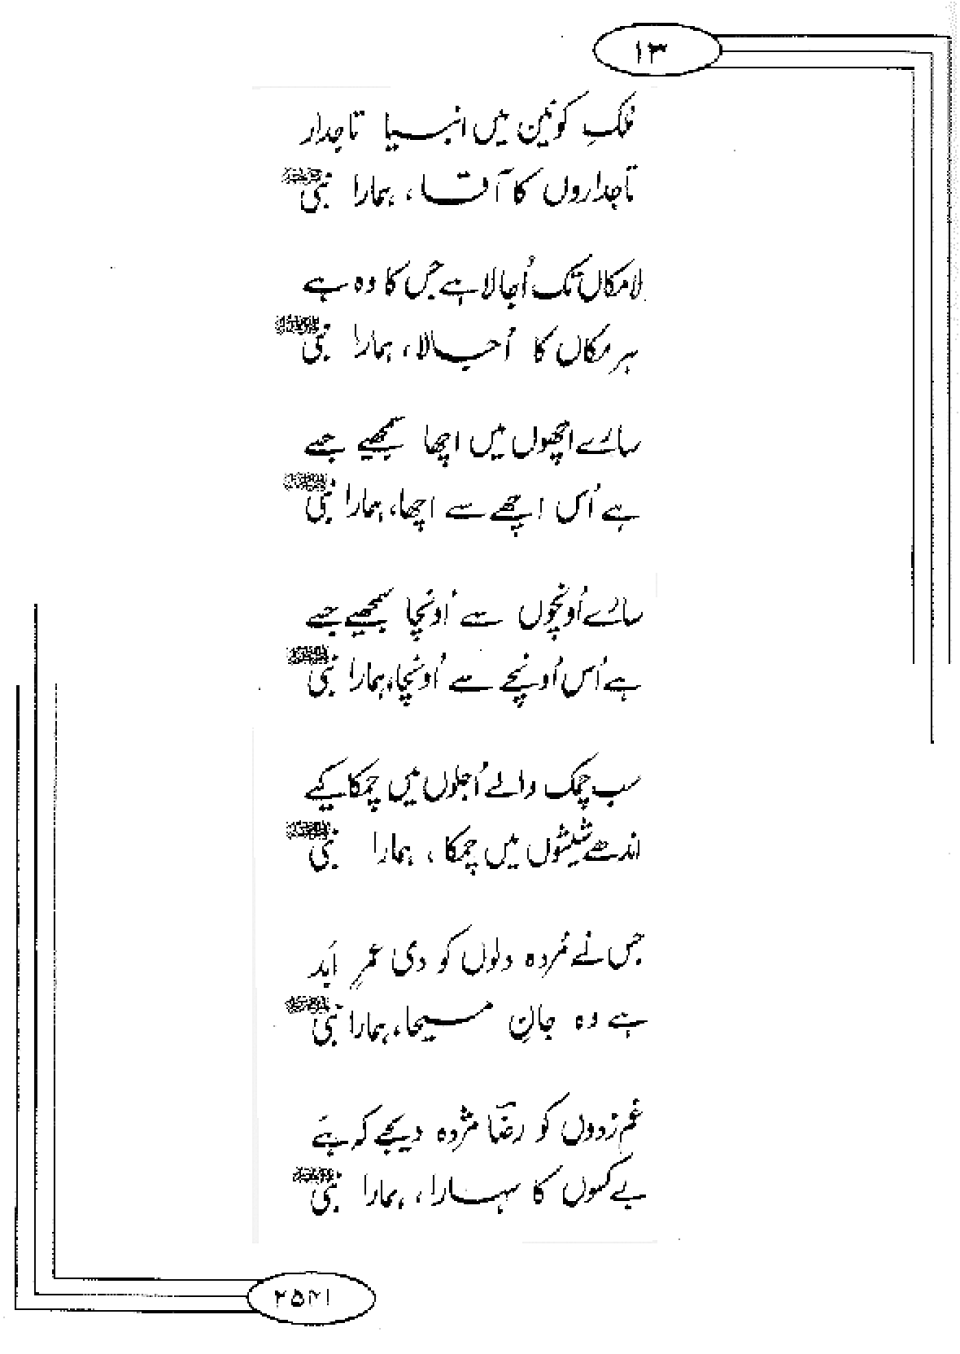 ۱۳
مُلکِ کونین میں انبیا تاجدار
تاجداروں کا آقا، ہمارا نبی ﷺ
لامکاں تک اُجالا ہے جس کا وہ ہے
ہر مکاں کا اُجالا، ہمارا نبی ﷺ
سارے اچھوں میں اچھا سمجھیے جسے
ہے اُس اچھے سے اچھا، ہمارا نبی ﷺ
سارے اُونچوں سے اُونچا سمجھیے جسے
ہے اُس اُونچے سے اُونچا، ہمارا نبی ﷺ
سب چمک والے اُجلوں میں چمکا کیے
اندھے شیشوں میں چمکا، ہمارا نبی ﷺ
جس نے مُردہ دلوں کو دی عمرِ اَبد
ہے وہ جانِ مسیحا، ہمارا نبی ﷺ
غم زدوں کو رضاؔ مژدہ دیجے کہ ہے
بےکسوں کا سہارا، ہمارا نبی ﷺ